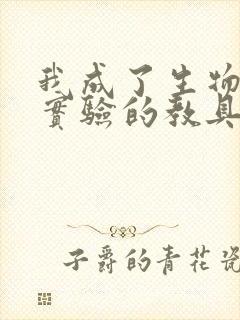 我成了生物
實驗的教具
子爵的青花瓷